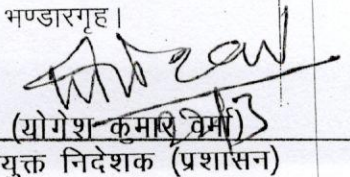 भण्डारगृह।
(योगेश कुमार वर्मा)
युक्त निदेशक (प्रशासन)